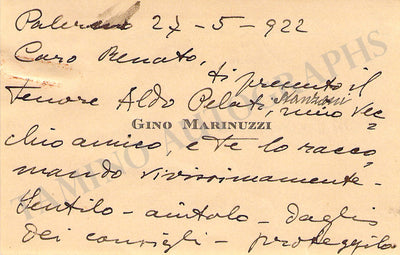 Palermo 27-5-922
Caro Renato,
ti presento il
Tenore Aldo Pelati, Manzoni mio vec=
GINO MARINUZZI
chio amico, e te lo racco
mando vivissimamente -
Sentilo - aiutalo - daglis
dei consigli - proteggilo
TAMINO AUTOGRAPHS